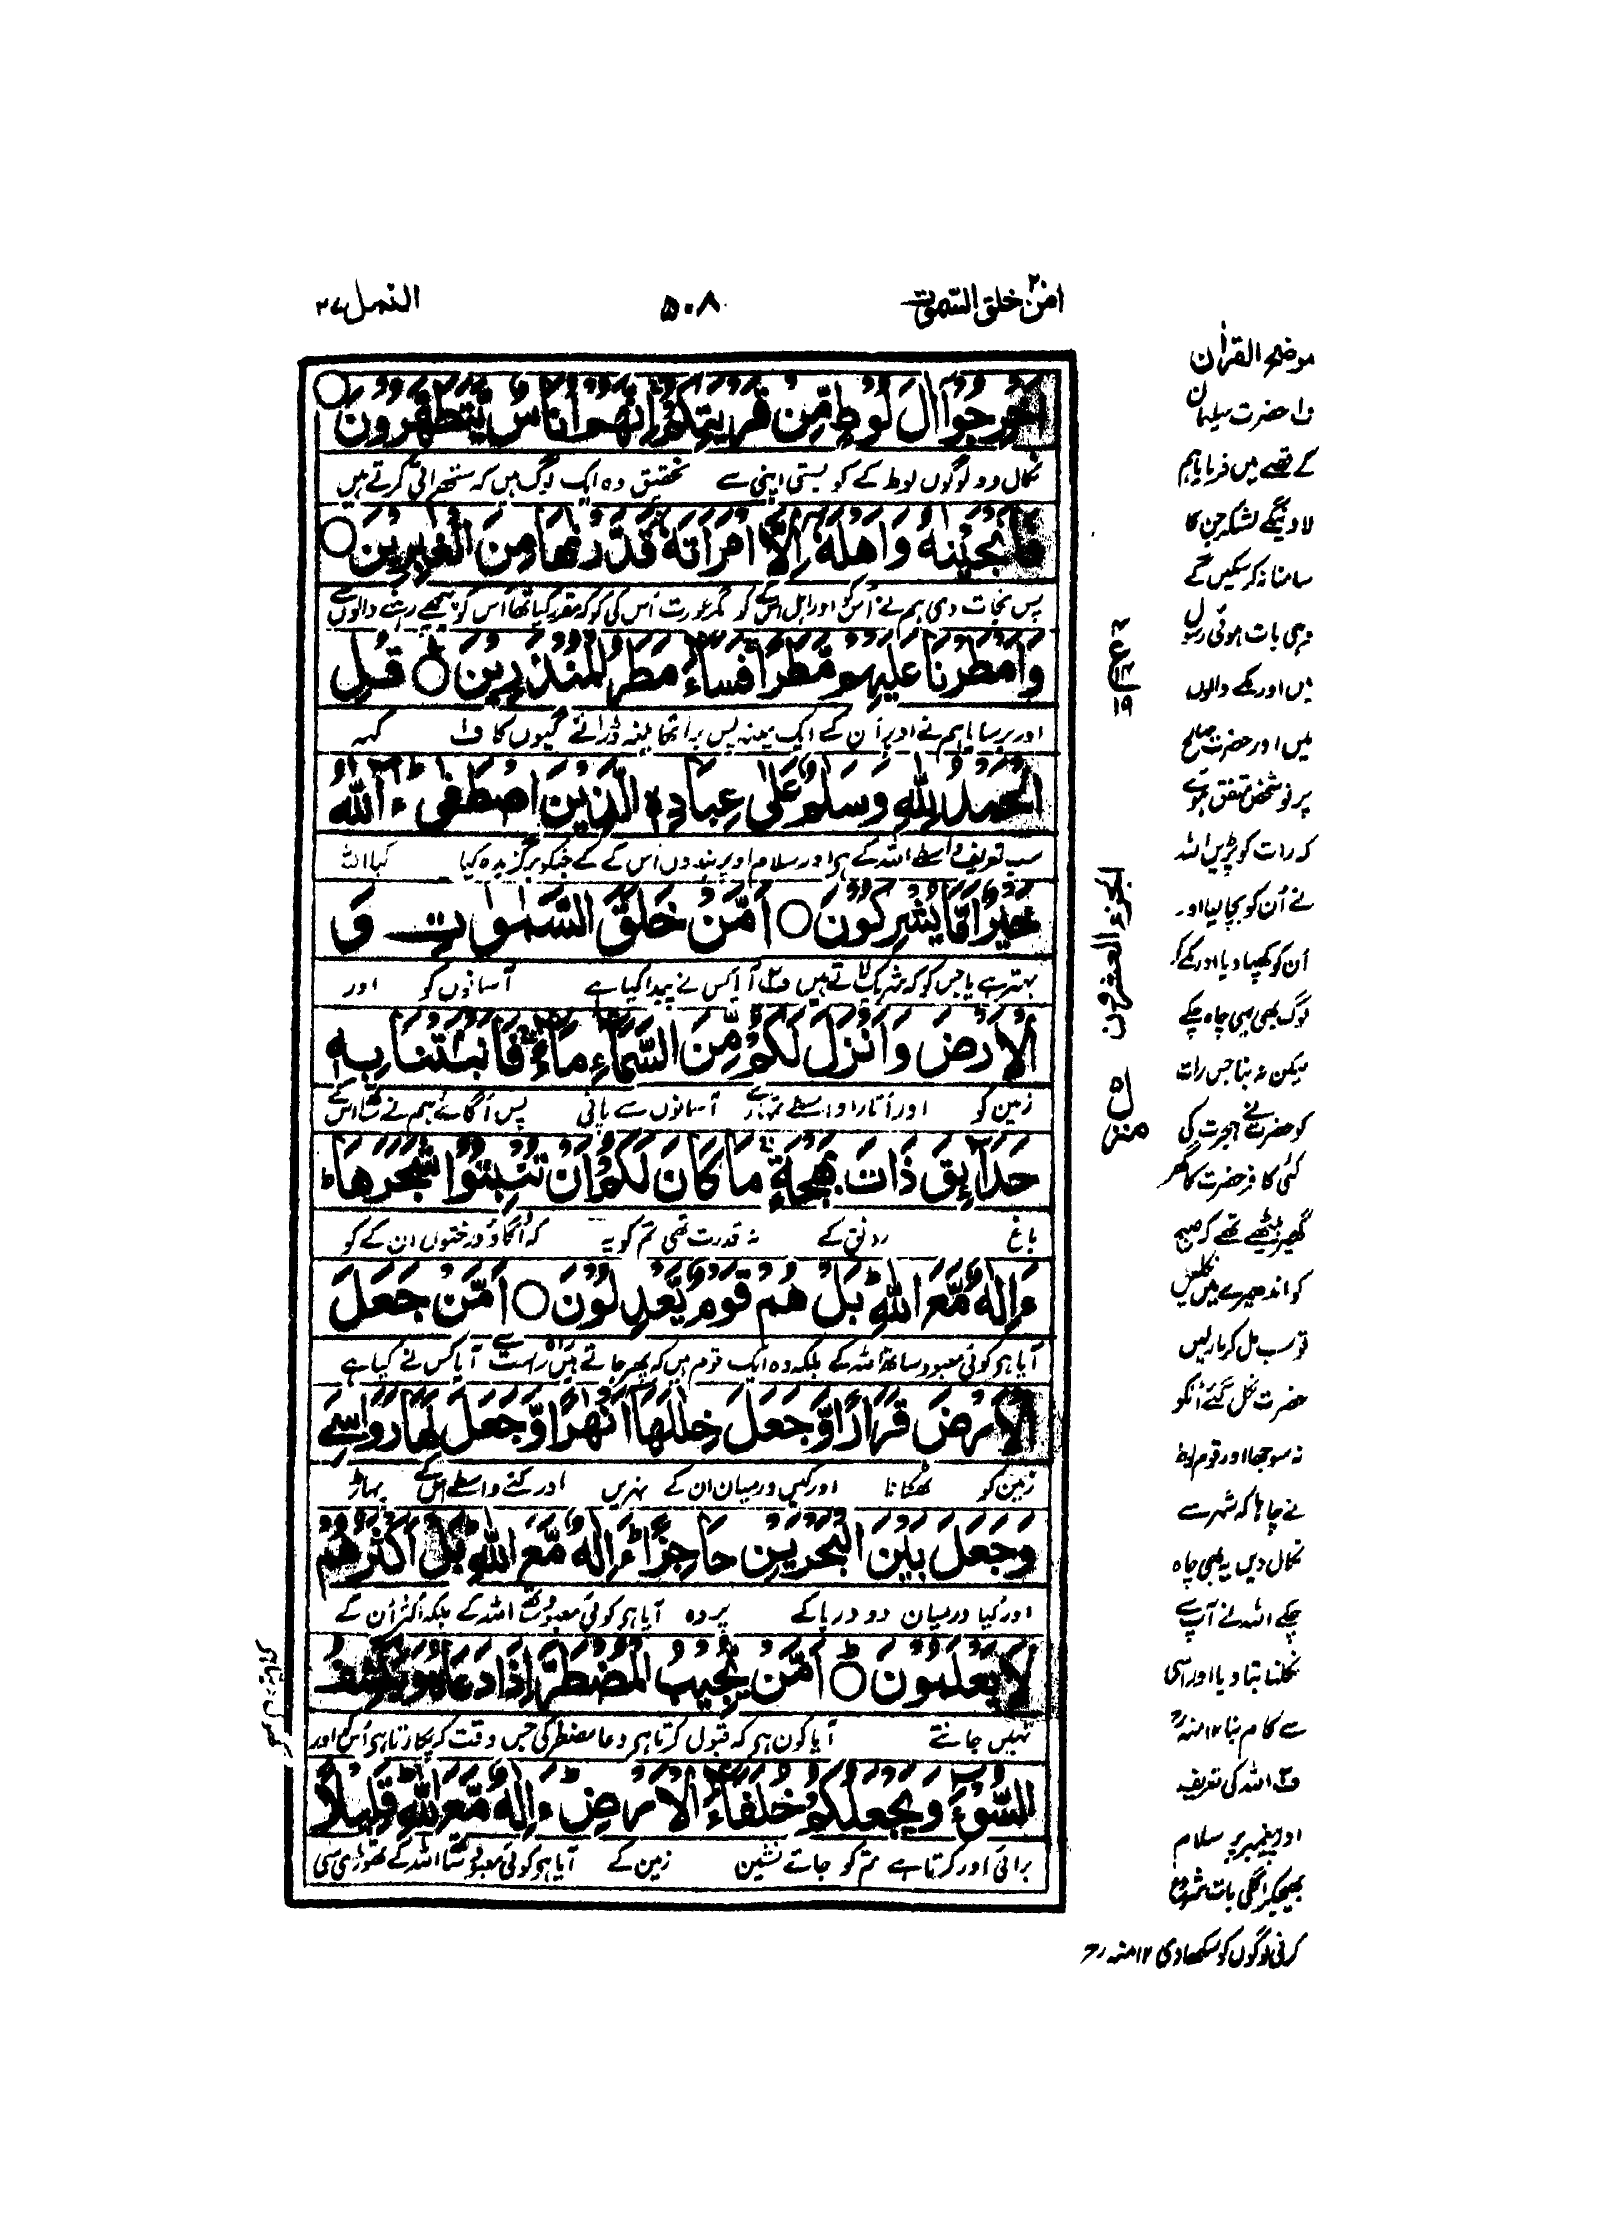 امّن خلق السّمٰوٰت ٢٠
٥٠٨
النمل ٢٧
اَخْرِجُوْٓا اٰلَ لُوْطٍ مِّنْ قَرْيَتِكُمْ اِنَّهُمْ اُنَاسٌ يَّتَطَهَّرُوْنَ ○
نکال دو لوگوں لوط کے کو بستی اپنی سے تحقیق وہ ایک لوگ ہیں کہ ستھرائی کرتے ہیں
فَاَنْجَيْنٰهُ وَاَهْلَهٗٓ اِلَّا امْرَاَتَهٗ قَدَّرْنٰهَا مِنَ الْغٰبِرِيْنَ ○
پس نجات دی ہم نے اُس کو اور اہل اُس کے کو مگر عورت اُس کی کو کہ مقرر کیا تھا اُس کو پیچھے رہنے والوں سے
وَاَمْطَرْنَا عَلَيْهِمْ مَّطَرًا فَسَآءَ مَطَرُ الْمُنْذَرِيْنَ ○ قُلِ
اور برسایا ہم نے اوپر اُن کے ایک مینہ پس برا تھا مینہ ڈرائے گیوں کا ف۱ کہہ
الْحَمْدُ لِلّٰهِ وَسَلٰمٌ عَلٰى عِبَادِهِ الَّذِيْنَ اصْطَفٰى ؕ ءٰٓاللّٰهُ
سب تعریف واسطے اللہ کے ہی اور سلام اوپر بندوں اُس کے کے جنکو برگزیدہ کیا کیا اللہ
خَيْرٌ اَمَّا يُشْرِكُوْنَ ○ اَمَّنْ خَلَقَ السَّمٰوٰتِ وَ
بہتر ہے یا جس کو کہ شریک لاتے ہیں ف۲ آیا کس نے پیدا کیا ہے آسمانوں کو اور
الْاَرْضَ وَاَنْزَلَ لَكُمْ مِّنَ السَّمَآءِ مَآءً فَاَنْۢبَتْنَا بِهٖ
زمین کو اور اُتارا واسطے تمہارے آسمانوں سے پانی پس اُگائے ہم نے ساتھ اُس کے
حَدَآئِقَ ذَاتَ بَهْجَةٍ مَا كَانَ لَكُمْ اَنْ تُنْۢبِتُوْا شَجَرَهَا ؕ
باغ رونق کے نہ قدرت تھی تم کو یہ کہ اُگاؤ درختوں ان کے کو
ءَاِلٰهٌ مَّعَ اللّٰهِ ؕ بَلْ هُمْ قَوْمٌ يَّعْدِلُوْنَ ○ اَمَّنْ جَعَلَ
آیا ہی کوئی معبود ساتھ اللہ کے بلکہ وہ ایک قوم ہیں کہ پھر جاتے ہیں راہ راست سے آیا کس نے کیا ہے
الْاَرْضَ قَرَارًا وَّجَعَلَ خِلٰلَهَآ اَنْهٰرًا وَّجَعَلَ لَهَا رَوَاسِيَ
زمین کو ٹھکانا اور کیں درمیان ان کے نہریں اور کئے واسطے اس کے پہاڑ
وَجَعَلَ بَيْنَ الْبَحْرَيْنِ حَاجِزًا ؕ ءَاِلٰهٌ مَّعَ اللّٰهِ ؕ بَلْ اَكْثَرُهُمْ
اور کیا درمیان دو دریا کے پردہ آیا ہی کوئی معبود ساتھ اللہ کے بلکہ اکثر اُن کے
لَا يَعْلَمُوْنَ ○ اَمَّنْ يُّجِيْبُ الْمُضْطَرَّ اِذَا دَعَاهُ وَيَكْشِفُ
نہیں جانتے آیا کون ہی کہ قبول کرتا ہی دعا مضطر کی جس وقت کہ پکارتا ہی اُس کو اور
السُّوْٓءَ وَيَجْعَلُكُمْ خُلَفَآءَ الْاَرْضِ ؕ ءَاِلٰهٌ مَّعَ اللّٰهِ ؕ قَلِيْلًا
برائی اور کرتا ہے تم کو جانشین زمین کے آیا ہی کوئی معبود ساتھ اللہ کے تھوڑی سی
موضح القرآن
ف۱ حضرت سلیمان
کے قصے میں فرمایا ہم
لاوینگے لشکر جن کا
سامنا نہ کر سکیں گے
وہی بات ہوئی رسول
میں اور مکے والوں
میں اور حضرت صالح
پر نو شخص متفق ہوئے
کہ رات کو پڑیں اللہ
نے اُن کو بچا لیا اور
اُن کو کھپا دیا اور مکے کے
لوگ بھی یہی چاہ چکے
لیکن نہ بنا جس رات
کو حضرت نے ہجرت کی
کئی کافر حضرت کا گھر
گھیر بیٹھے تھے کہ صبح
کو اندھیرے میں نکلیں
تو سب مل کر مار لیں
حضرت نکل گئے انکو
نہ سوجھا اور قوم لوط
نے چاہا کہ شہر سے
نکال دیں یہ بھی چاہ
چکے اللہ نے آپ سے
نکلنا بتا دیا اور اسی
سے کام بنا ١٢ منہ رح
ف۲ اللہ کی تعریف
اور پیغمبر پر سلام
بھیجکر اگلی بات شروع
کرنی لوگوں کو سکھا دی ١٢ منہ رح
ع
١٩
الجزء العشرون
منزل ٥